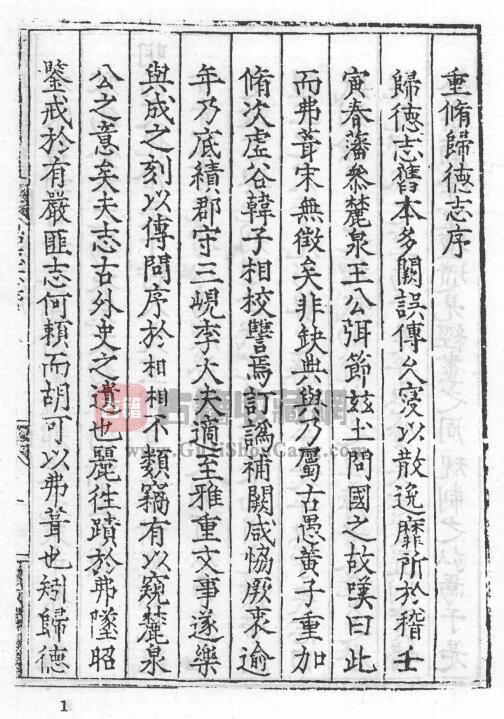 重脩歸德志序
歸德志舊本多闕誤傳久寖以散逸靡所於稽壬
寅春藩叅麓泉王公弭節茲土問國之故嘆曰此
而弗葺宋無徵矣非缺典與乃屬古愚黃子重加
脩次虛谷韓子相校讐焉訂譌補闕咸恊厥衷逾
年乃底績郡守三峴李大夫適至雅重文事遂樂
與成之刻以傳問序於相相不類竊有以窺麓泉
公之意矣夫志古外史之遺也麗徃蹟於弗墜昭
鑒戒於有嚴匪志何賴而胡可以弗葺也矧歸德
1
古籍
古籍收藏網
www.GujiShouCang.com